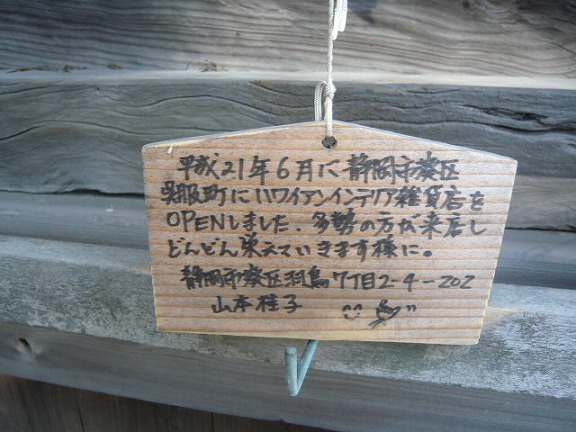 平成21年6月に静岡市葵区
呉服町にハワイアンインテリア雑貨店を
OPENしました、多勢の方が来店し
どんどん栄えていきます様に。
静岡市葵区羽鳥7丁目2-4-202
山本桂子